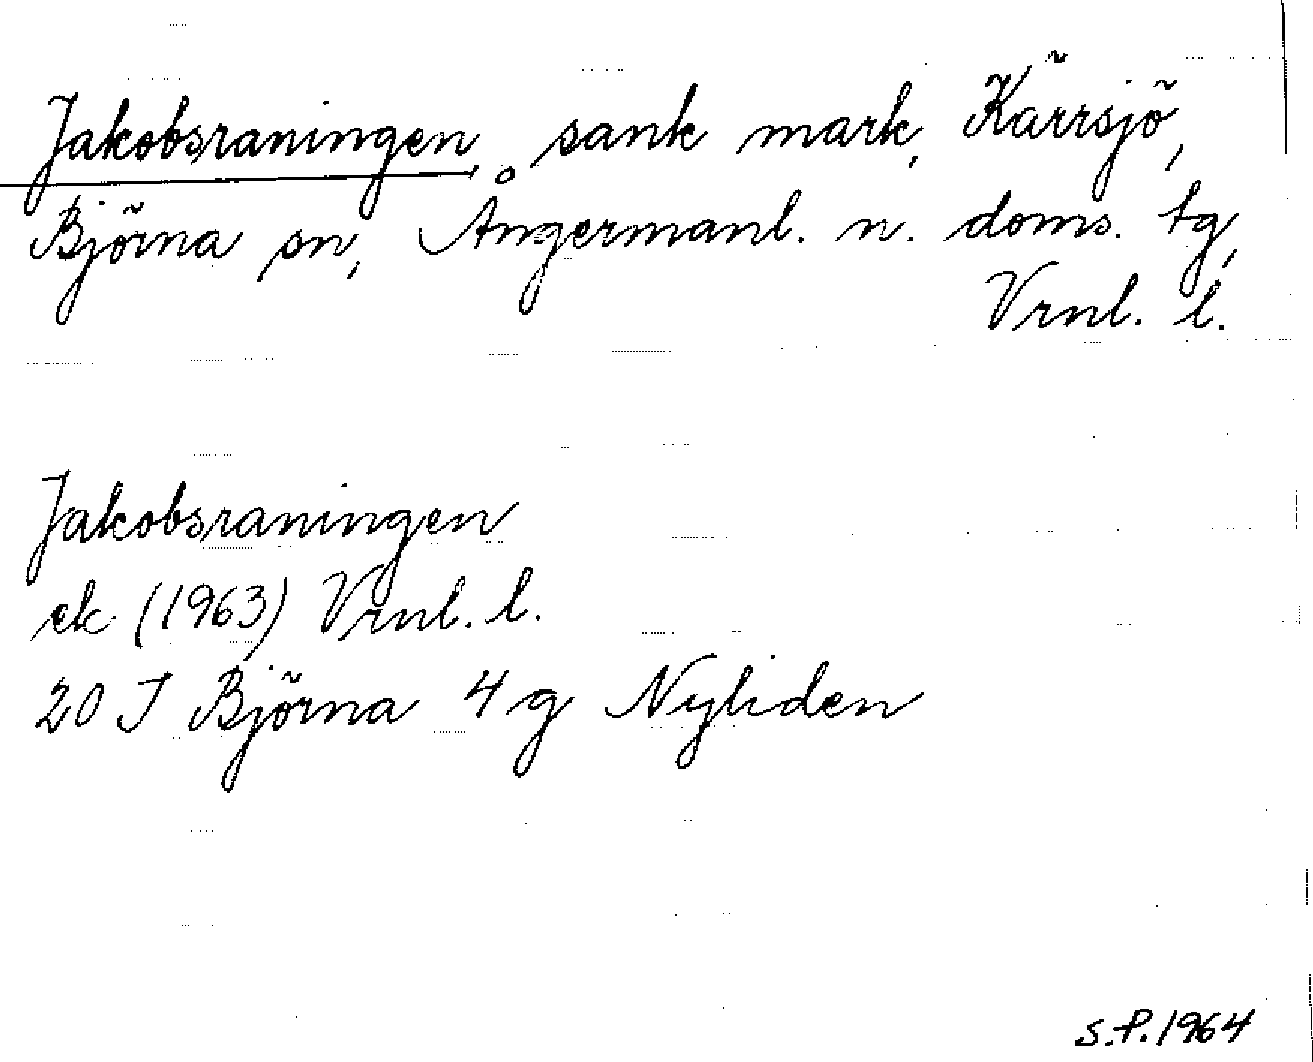 Jakobsraningen, sank mark, Kärrsjö,
Björna sn, Ångermanl. n. doms. tg,
Vrnl. l.
Jakobsraningen
ek (1963) Vrnl. l.
20 J Björna 4 g Nyliden
S.P. 1964